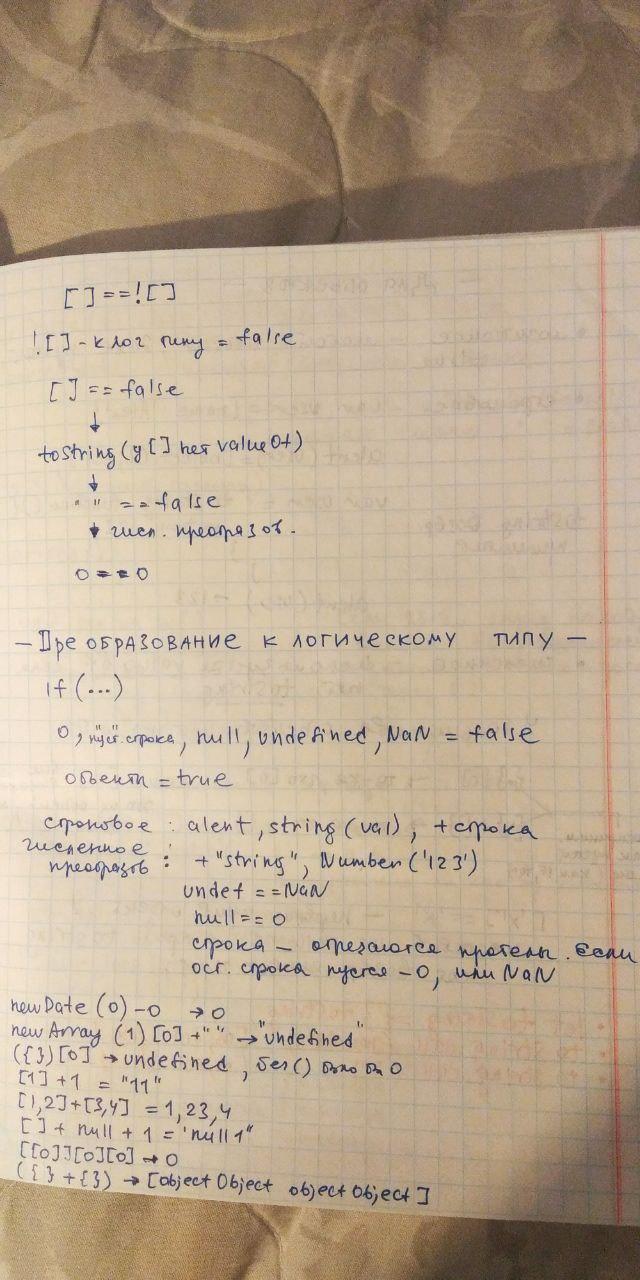 [] == ![]
![] - к лог типу = false
[] == false
↓
toString (у [] нет valueOf)
↓
" " == false
↓ числ. преобразов.
0 == 0
— Преобразование к логическому типу —
if (...)
0, "пуст. строка", null, undefined, NaN = false
объекты = true
строковое : alert, string (val), + строка
численное преобразов : + "string", Number ('123')
undef == NaN
null == 0
строка – отрезаются пробелы. Если
ост. строка пустая – 0, или NaN
new Date (0) - 0 → 0
new Array (1) [0] + " " → "undefined"
({}) [0] → undefined, без () было бы 0
[1] + 1 = "11"
[1,2] + [3,4] = 1,23,4
[] + null + 1 = 'null1"
[[0]][0][0] → 0
({} + {}) → [object Object object Object]